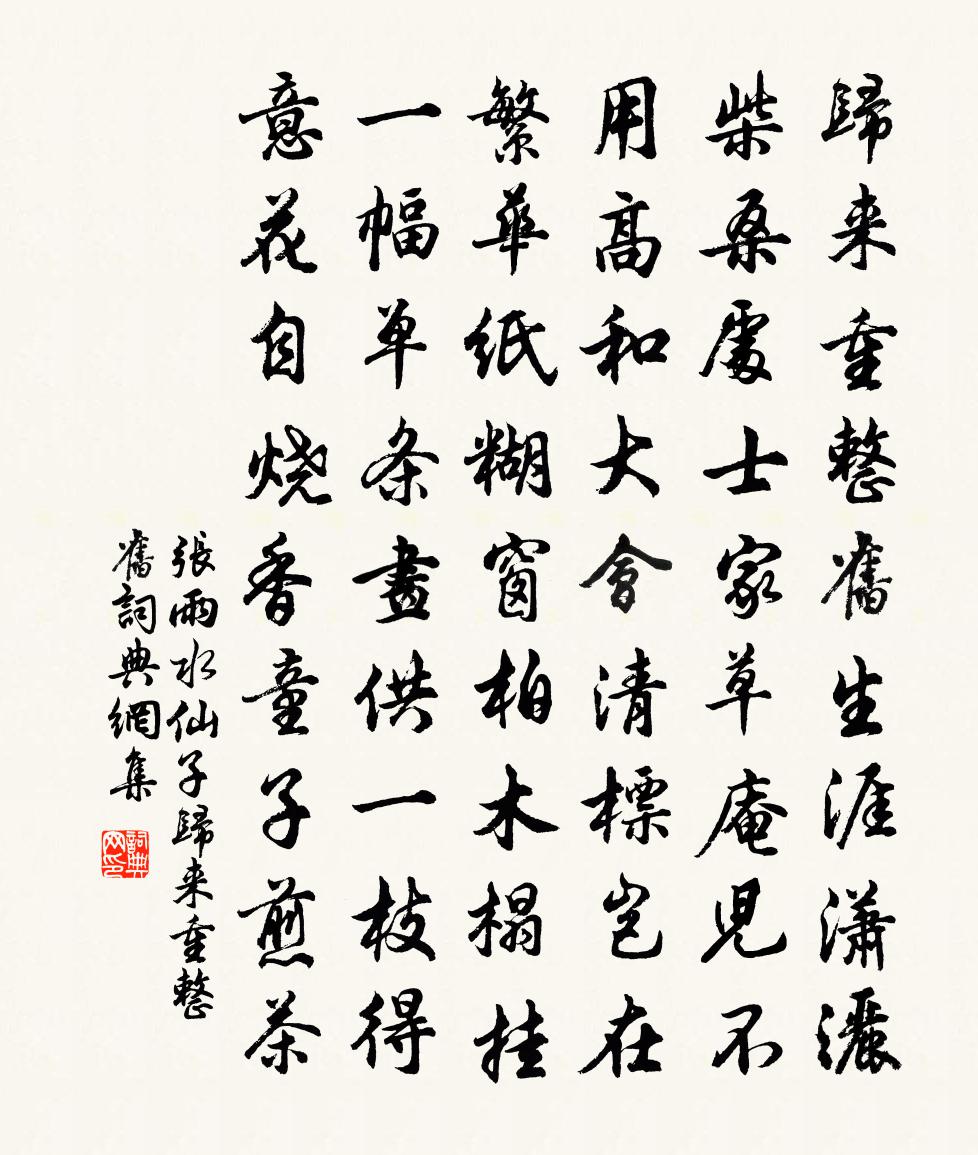 歸来重整舊生涯瀟灑
柴桑處士家草庵児不
用高和大會清標岂在
繁華紙糊窗柏木榻挂
一幅单条畫供一枝得
意花自烧香童子煎茶
張雨水仙子歸来重整
舊詞典網集
詞典网印